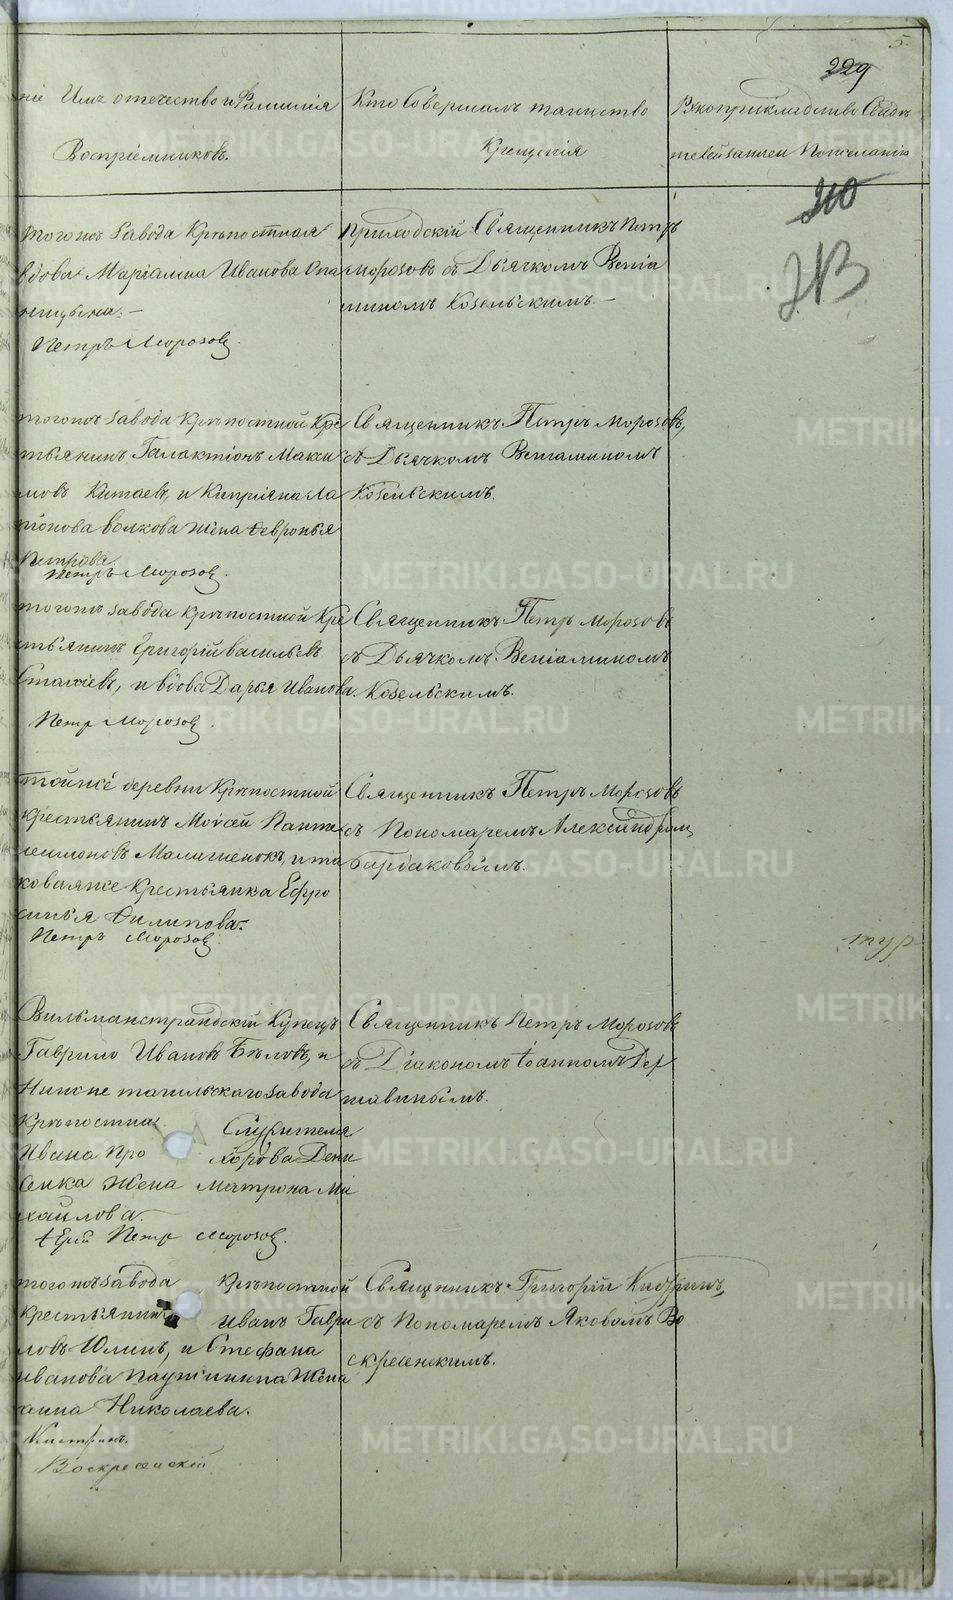 5.
229
210
ніе Имя отечество и Фамилія
Воспріемниковъ.
Кто Совершалъ таинство
Крещенія
Рукоприкладство Свидѣ
телей записи По желанію
тогожъ завода Крѣпостная
вдова Маріамна Иванова
Петръ Морозов
Приходскій Священникъ Петръ
Морозовъ съ Дьячкомъ Веніа
миномъ Козельскимъ.—
тогожъ завода Крѣпостной Кре
стьянинъ Галактіонъ Макси
мовъ Китаевъ, и Кипріяна Ла
ріонова Волкова жена Февронья
Петрова.
Петръ Морозов.
Священникъ Петръ Морозовъ,
съ Дьячкомъ Веніаминомъ
Козельскимъ.
тогожъ завода Крѣпостной Кре
стьянинъ Григорій Васильевъ
и вдова Дарья Иванова.
Петр Морозов
Священникъ Петръ Морозовъ
съ Дьячкомъ Веніаминомъ
Козельскимъ.
тойже деревни Крѣпостной
крестьянинъ Моисей Панте
леимоновъ Малашенокъ, и та
коваяже Крестьянка Ефро
синья Филипова.
Петръ Морозов
Священникъ Петръ Морозовъ
съ Пономаремъ Александром
Бардаковымъ.
Вильманстрандскій Купецъ
Гаврило Ивановъ Бѣловъ, и
Нижне тагильскаго завода
Крѣпостна Служителя
Ивана Про хорова Дени
сенка жена Матрона Ми
хайлова.
Іерей Петр Морозов.
Священникъ Петръ Морозовъ
съ Діакономъ Іоанномъ Дер
жавинымъ.
тогожъ завода Крѣпостной
Крестьянинъ Иванъ Гаври
ловъ Юлинъ, и Стефана
Иванова Паутинкина Жена
анна Николаева.
Воскресенскій
Священникъ Григорій Кидринъ,
съ Пономаремъ Яковомъ Во
скресенскимъ.
METRIKI.GASO-URAL.RU